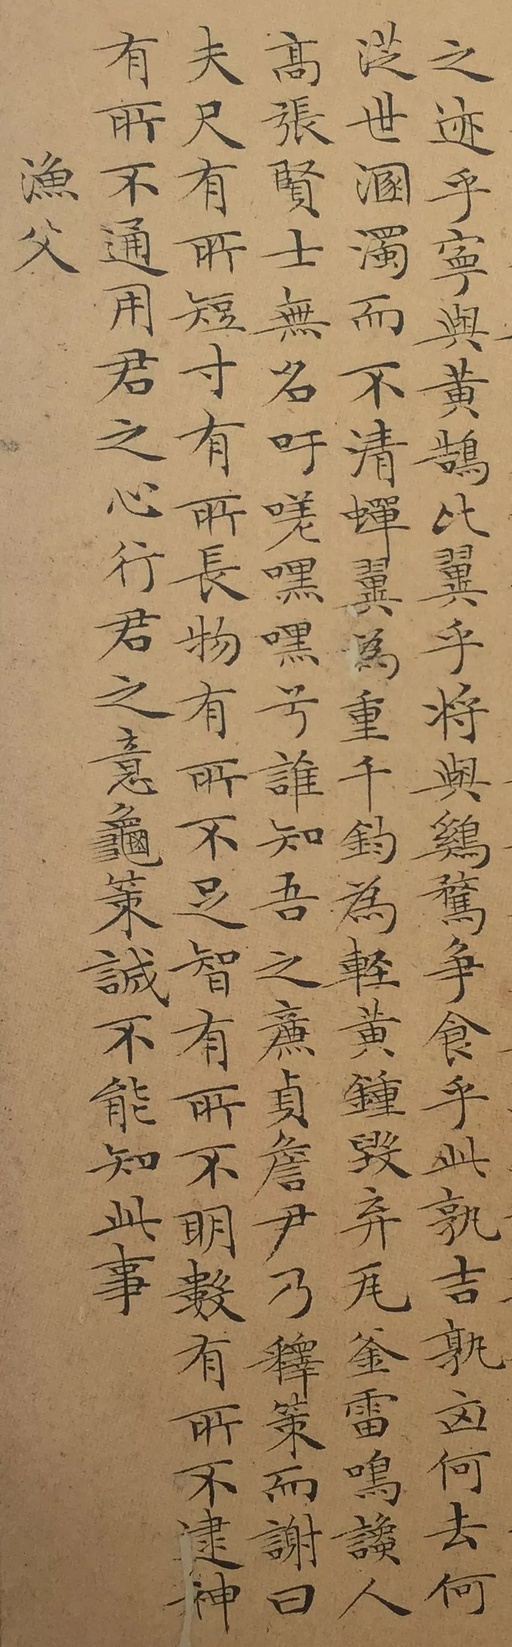 之迹乎寜與黃鵠比翼乎將與鷄鶩争食乎此孰吉孰凶何去何
從世溷濁而不清蟬翼為重千鈞為輕黃鍾毀弃瓦釜雷鳴讒人
高張賢士無名吁嗟嘿嘿兮誰知吾之廉貞詹尹乃釋策而謝曰
夫尺有所短寸有所長物有所不足智有所不明數有所不逮神
有所不通用君之心行君之意龜策誠不能知此事
漁父